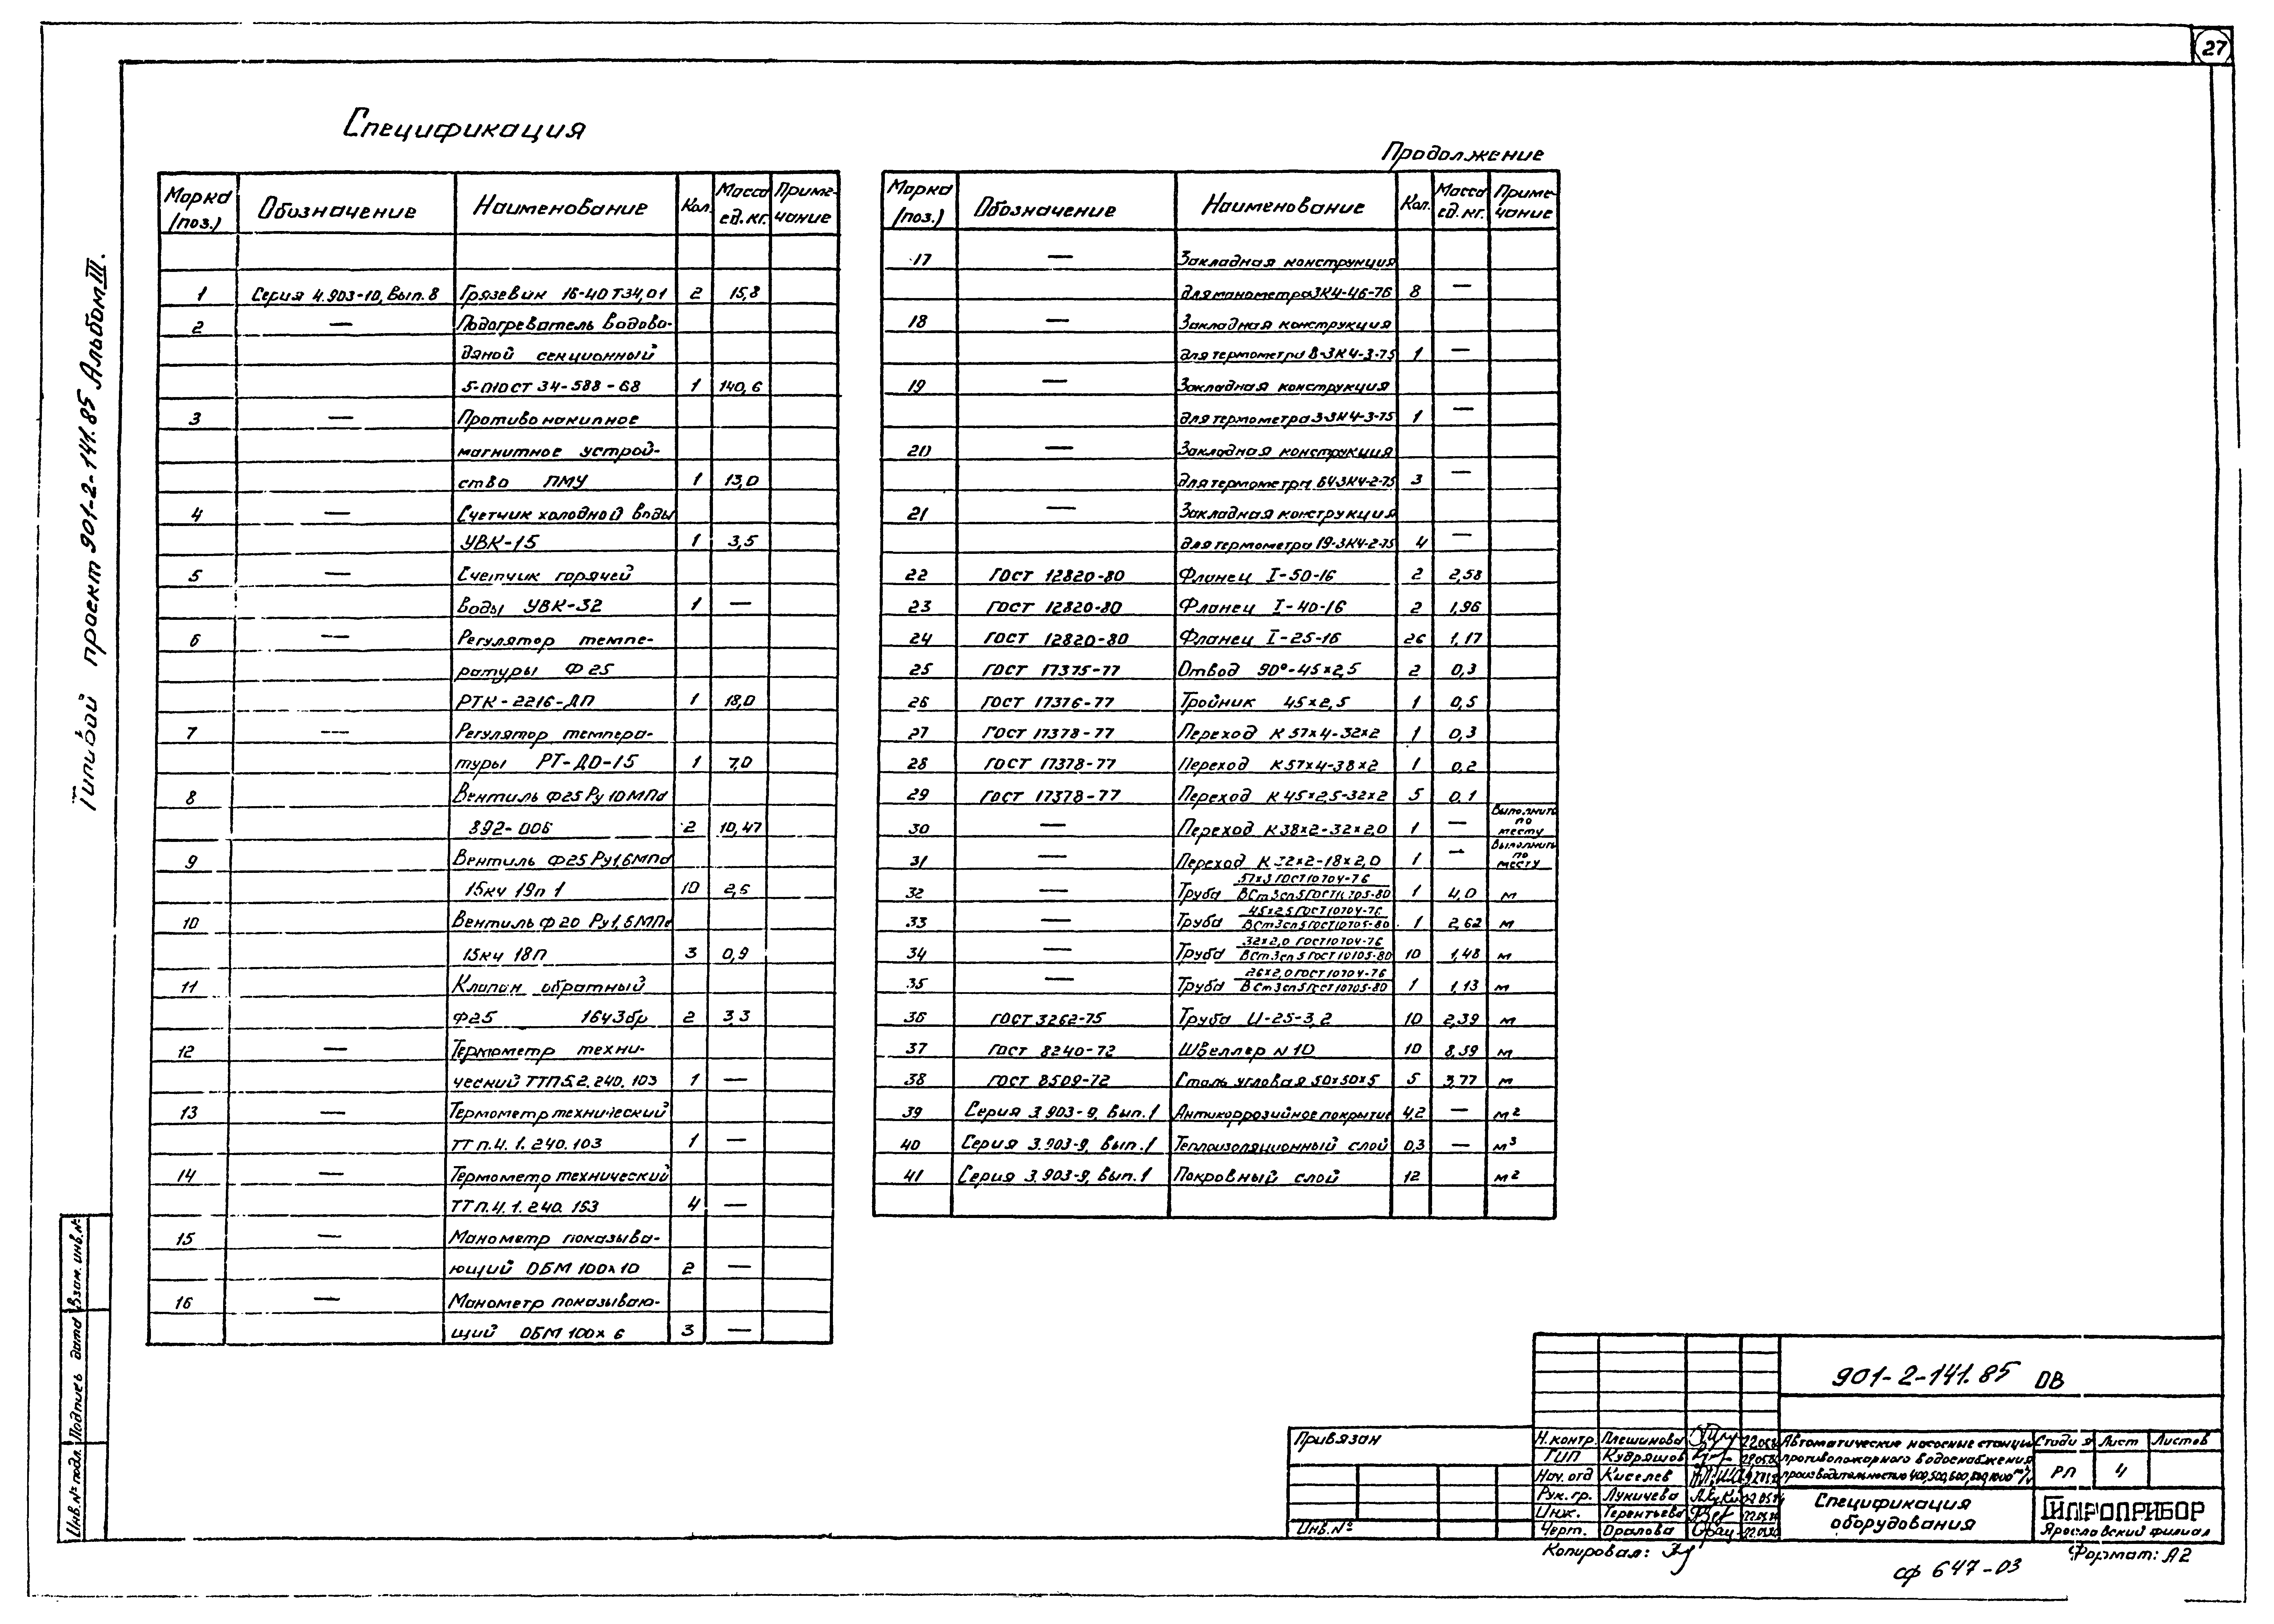 27
Типовой проект 901-2-141.85 Альбом III.
Спецификация
Марка (поз.) Обозначение Наименование Кол. Масса ед.кг. Примечание
1 Серия 4.903-10, Вып.8 Грязевик 16-40 Т34,01 2 15,8
2 — Подогреватель водово-
дяной секционный
5-01ОСТ 34-588-68 1 140,6
3 — Противонакипное
магнитное устрой-
ство ПМУ 1 13,0
4 — Счетчик холодной воды
УВК-15 1 3,5
5 — Счетчик горячей
воды УВК-32 1 —
6 — Регулятор темпе-
ратуры Ф25
РТК-2216-ДП 1 18,0
7 — Регулятор темпера-
туры РТ-ДО-15 1 7,0
8 Вентиль Ф25 Ру 10МПа
892-006 2 10,47
9 Вентиль Ф25 Ру1,6МПа
15кч 19п 1 10 2,6
10 Вентиль Ф20 Ру1,6МПа
15кч 18П 3 0,9
11 Клапан обратный
Ф25 16ч3бр 2 3,3
12 — Термометр техни-
ческий ТТП5.2.240.103 1 —
13 — Термометр технический
ТТ п.4.1.240.103 1 —
14 — Термометр технический
ТТП.4.1.240.163 4 —
15 — Манометр показыва-
ющий ОБМ 100х10 2 —
16 — Манометр показываю-
щий ОБМ 100х6 3 —
Продолжение
Марка (поз.) Обозначение Наименование Кол. Масса ед.кг. Примечание
17 — Закладная конструкция
для манометра ЗК4-46-76 8 —
18 — Закладная конструкция
для термометра 8-ЗК4-3-75 1 —
19 — Закладная конструкция
для термометра 3-ЗК4-3-75 1 —
20 — Закладная конструкция
для термометра 64ЗК4-2-75 3 —
21 — Закладная конструкция
для термометра 19-ЗК4-2-75 4 —
22 ГОСТ 12820-80 Фланец I-50-16 2 2,58
23 ГОСТ 12820-80 Фланец I-40-16 2 1,96
24 ГОСТ 12820-80 Фланец I-25-16 26 1,17
25 ГОСТ 17375-77 Отвод 90°-45×2,5 2 0,3
26 ГОСТ 17376-77 Тройник 45×2,5 1 0,5
27 ГОСТ 17378-77 Переход К 57×4-32×2 1 0,3
28 ГОСТ 17378-77 Переход К57×4-38×2 1 0,2
29 ГОСТ 17378-77 Переход К 45×2,5-32×2 5 0,1
30 — Переход К38×2-32×2,0 1 — Выполнить по месту
31 — Переход К 32×2-18×2,0 1 — Выполнить по месту
32 — Труба 57×3 ГОСТ10704-76 / ВСт3сп5 ГОСТ10705-80 1 4,0 м
33 — Труба 45×2,5 ГОСТ10704-76 / ВСт3сп5 ГОСТ10705-80 1 2,62 м
34 — Труба 32×2,0 ГОСТ10704-76 / ВСт3сп5 ГОСТ10705-80 10 1,48 м
35 — Труба 26×2,0 ГОСТ10704-76 / ВСт3сп5 ГОСТ10705-80 1 1,13 м
36 ГОСТ 3262-75 Труба Ц-25-3,2 10 2,39 м
37 ГОСТ 8240-72 Швеллер N10 10 8,59 м
38 ГОСТ 8509-72 Сталь угловая 50×50×5 5 3,77 м
39 Серия 3.903-9, Вып.1 Антикоррозийное покрытие 4,2 — м²
40 Серия 3.903-9, Вып.1 Теплоизоляционный слой 0,3 — м³
41 Серия 3.903-9, Вып.1 Покровный слой 12 м²
Инв.№ подл. Подпись дата Взам. инв.№
Привязан
Инв.№
901-2-141.85 ОВ
Н.контр. Плешинова
ГИП Кудряшов
Нач.отд Киселев
Рук.гр. Лукичева
Инж. Терентьева
Черт. Оралова
Автоматические насосные станции
противопожарного водоснабжения
производительностью 400,500,600,800,1000 м³/ч
Стадия Лист Листов
РП 4
Спецификация
оборудования
ГИПРОПРИБОР
Ярославский филиал
Копировал:
Формат: А2
сф 647-03